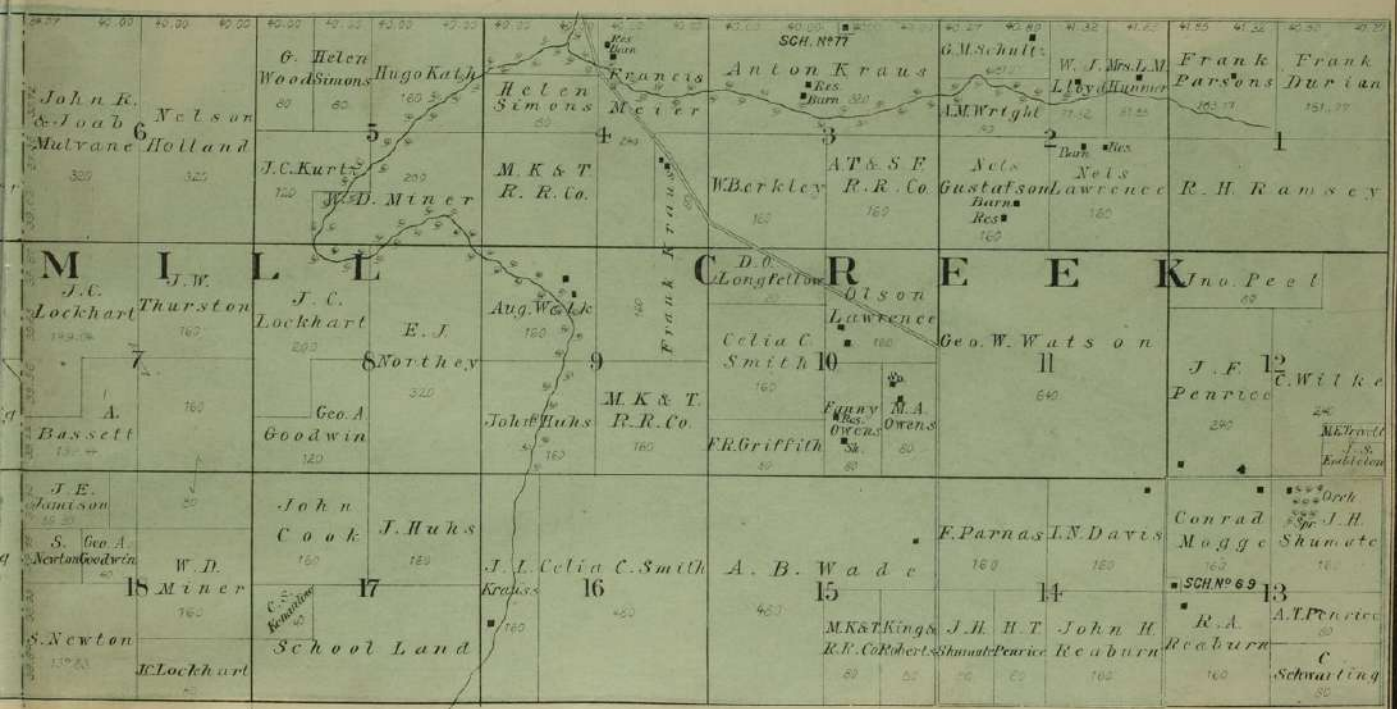 40.00 40.00 40.00 40.00 40.00 40.00 40.00 40.00 40.00
SCH. Nº 77
John R.
& Joab
Mulvane
320
6
Nelson
Holland
320
G.
Wood
80
Helen
Simons
80
Hugo Kath
160
5
J.C. Kurtz
120
200
W.D. Miner
Helen
Simons
80
Res
Barn
Francis
Meier
240
4
M. K & T
R. R. Co.
Frank Kraus
160
Anton Kraus
Res.
Barn 320
3
W. Berkley
160
A.T & S F
R. R. Co.
160
G.M. Schultz
A.M. Wright
80
W. J.
Lloyd
Mrs. L.M.
Hummer
2
Nels
Gustafson
Barn
Res
160
Barn Res
Nels
Lawrence
160
Frank
Parsons
Frank
Durian
1
R. H. Ramsey
MILL CREEK
J.C.
Lockhart
J.W.
Thurston
160
7
160
A.
Bassett
J. C.
Lockhart
200
E. J.
Northey
320
8
Geo. A.
Goodwin
120
Aug. Welk
160
9
John Huhs
160
M. K & T.
R. R. Co.
160
D.O.
Longfellow
80
Olson
Lawrence
160
Celia C.
Smith
160
10
F.R. Griffith
80
Fanny
Res.
Owens
Sh.
80
M.A.
Owens
80
Geo. W. Watson
11
640
Jno. Peel
80
J. F.
Penrice
240
12
C. Wilke
240
J. S.
Embleton
J. E.
Jamison
80
S.
Newton
Geo. A.
Goodwin
40
W. D.
Miner
160
18
S. Newton
K. Lockhart
80
John
Cook
160
J. Huhs
160
17
C. S.
40
School Land
J. I.
Krauss
160
Celia C. Smith
16
480
A. B. Wade
480
15
M.K & T
R.R. Co
80
King &
Roberts
80
F. Parnas
160
I.N. Davis
160
14
J. H.
Shumate
80
H. T.
Penrice
80
John H.
Reaburn
160
Conrad
Mogge
160
Orch
Spr.
J. H.
Shumate
160
SCH. Nº 69
13
R. A.
Reaburn
160
A.T. Penrice
80
C
Schwarting
80